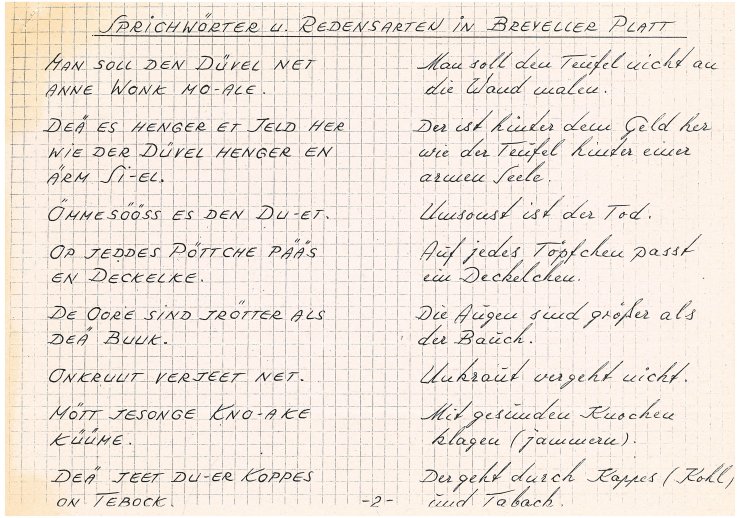 SPRICHWÖRTER u. REDENSARTEN IN BREYELLER PLATT
MAN SOLL DEN DÜVEL NET
ANNE WONK MO-ALE.
Man soll den Teufel nicht an
die Wand malen.
DEÄ ES HENGER ET JELD HER
WIE DER DÜVEL HENGER EN
ÄRM SI-EL.
Der ist hinter dem Geld her
wie der Teufel hinter einer
armen Seele.
ÖMMESÖÖSS ES DEN DU-ET.
Umsonst ist der Tod.
OP JEDDES PÖTTCHE PÄÄS
EN DECKELKE.
Auf jedes Töpfchen passt
ein Deckelchen.
DE OORE SIND JRÖTTER ALS
DEÄ BUUK.
Die Augen sind größer als
der Bauch.
ONKRUUT VERJEET NET.
Unkraut vergeht nicht.
MÖTT JESONGE KNO-AKE
KÜÜME.
Mit gesunden Knochen
klagen (jammern).
DEÄ JEET DU-ER KOPPES
ON TEBOCK.
Der geht durch Kappes (Kohl)
und Taback.
-2-